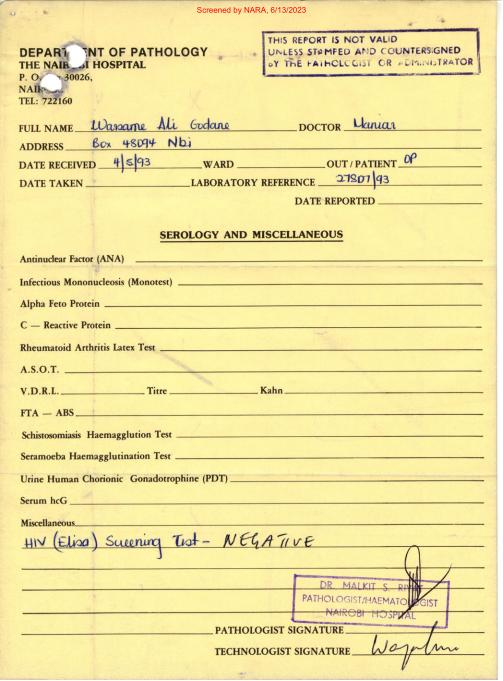 Screened by NARA, 6/13/2023
THIS REPORT IS NOT VALID
UNLESS STAMPED AND COUNTERSIGNED
BY THE PATHOLOGIST OR ADMINISTRATOR
DEPARTMENT OF PATHOLOGY
THE NAIROBI HOSPITAL
P. O. 30026,
TEL: 722160
FULL NAME Warsame Ali Godane DOCTOR Maniar
ADDRESS Box 48094 Nbi
DATE RECEIVED 4/5/93 WARD OUT / PATIENT OP
DATE TAKEN LABORATORY REFERENCE 27807/93
DATE REPORTED
SEROLOGY AND MISCELLANEOUS
Antinuclear Factor (ANA)
Infectious Mononucleosis (Monotest)
Alpha Feto Protein
C — Reactive Protein
Rheumatoid Arthritis Latex Test
A.S.O.T.
V.D.R.L. Titre Kahn
FTA — ABS
Schistosomiasis Haemagglution Test
Seramoeba Haemagglutination Test
Urine Human Chorionic Gonadotrophine (PDT)
Serum hcG
Miscellaneous
HIV (Elisa) Screening Test - NEGATIVE
DR. MALKIT S.
PATHOLOGIST/HAEMATOLOGIST
NAIROBI HOSPITAL
PATHOLOGIST SIGNATURE
TECHNOLOGIST SIGNATURE